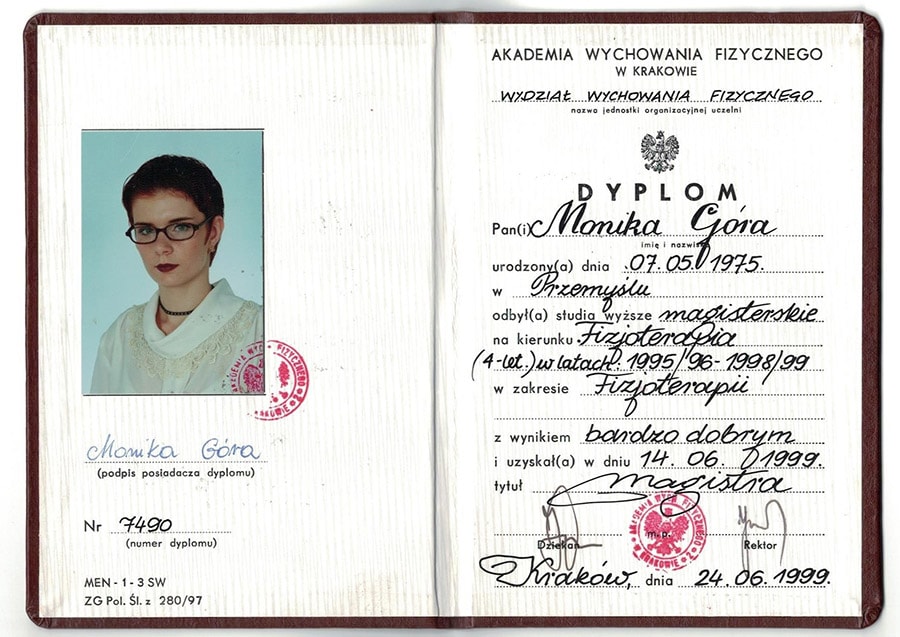 Monika Góra
(podpis posiadacza dyplomu)
Nr 7490
(numer dyplomu)
MEN - 1 - 3 SW
ZG Pol. Śl. z 280/97
AKADEMIA WYCHOWANIA FIZYCZNEGO
W KRAKOWIE
WYDZIAŁ WYCHOWANIA FIZYCZNEGO
nazwa jednostki organizacyjnej uczelni
DYPLOM
Pan(i) Monika Góra
imię i nazwisko
urodzony(a) dnia 07.05.1975.
w Przemyślu
odbył(a) studia wyższe magisterskie
na kierunku Fizjoterapia
(4-let.) w latach: 1995/96-1998/99
w zakresie Fizjoterapii
z wynikiem bardzo dobrym
i uzyskał(a) w dniu 14.06.1999.
tytuł magistra
m.p.
Dziekan Rektor
Kraków, dnia 24.06.1999.